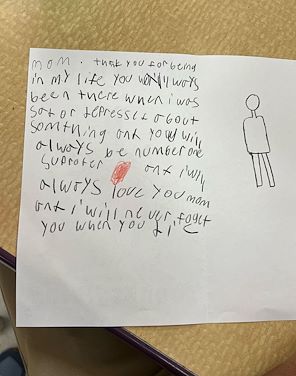 mom. thak you for being
in my life you always
been there when i was
sat or depresset about
somthing ant you will
always be number one
suproter ant i will
always love you mom
ant i will never foget
you when you die